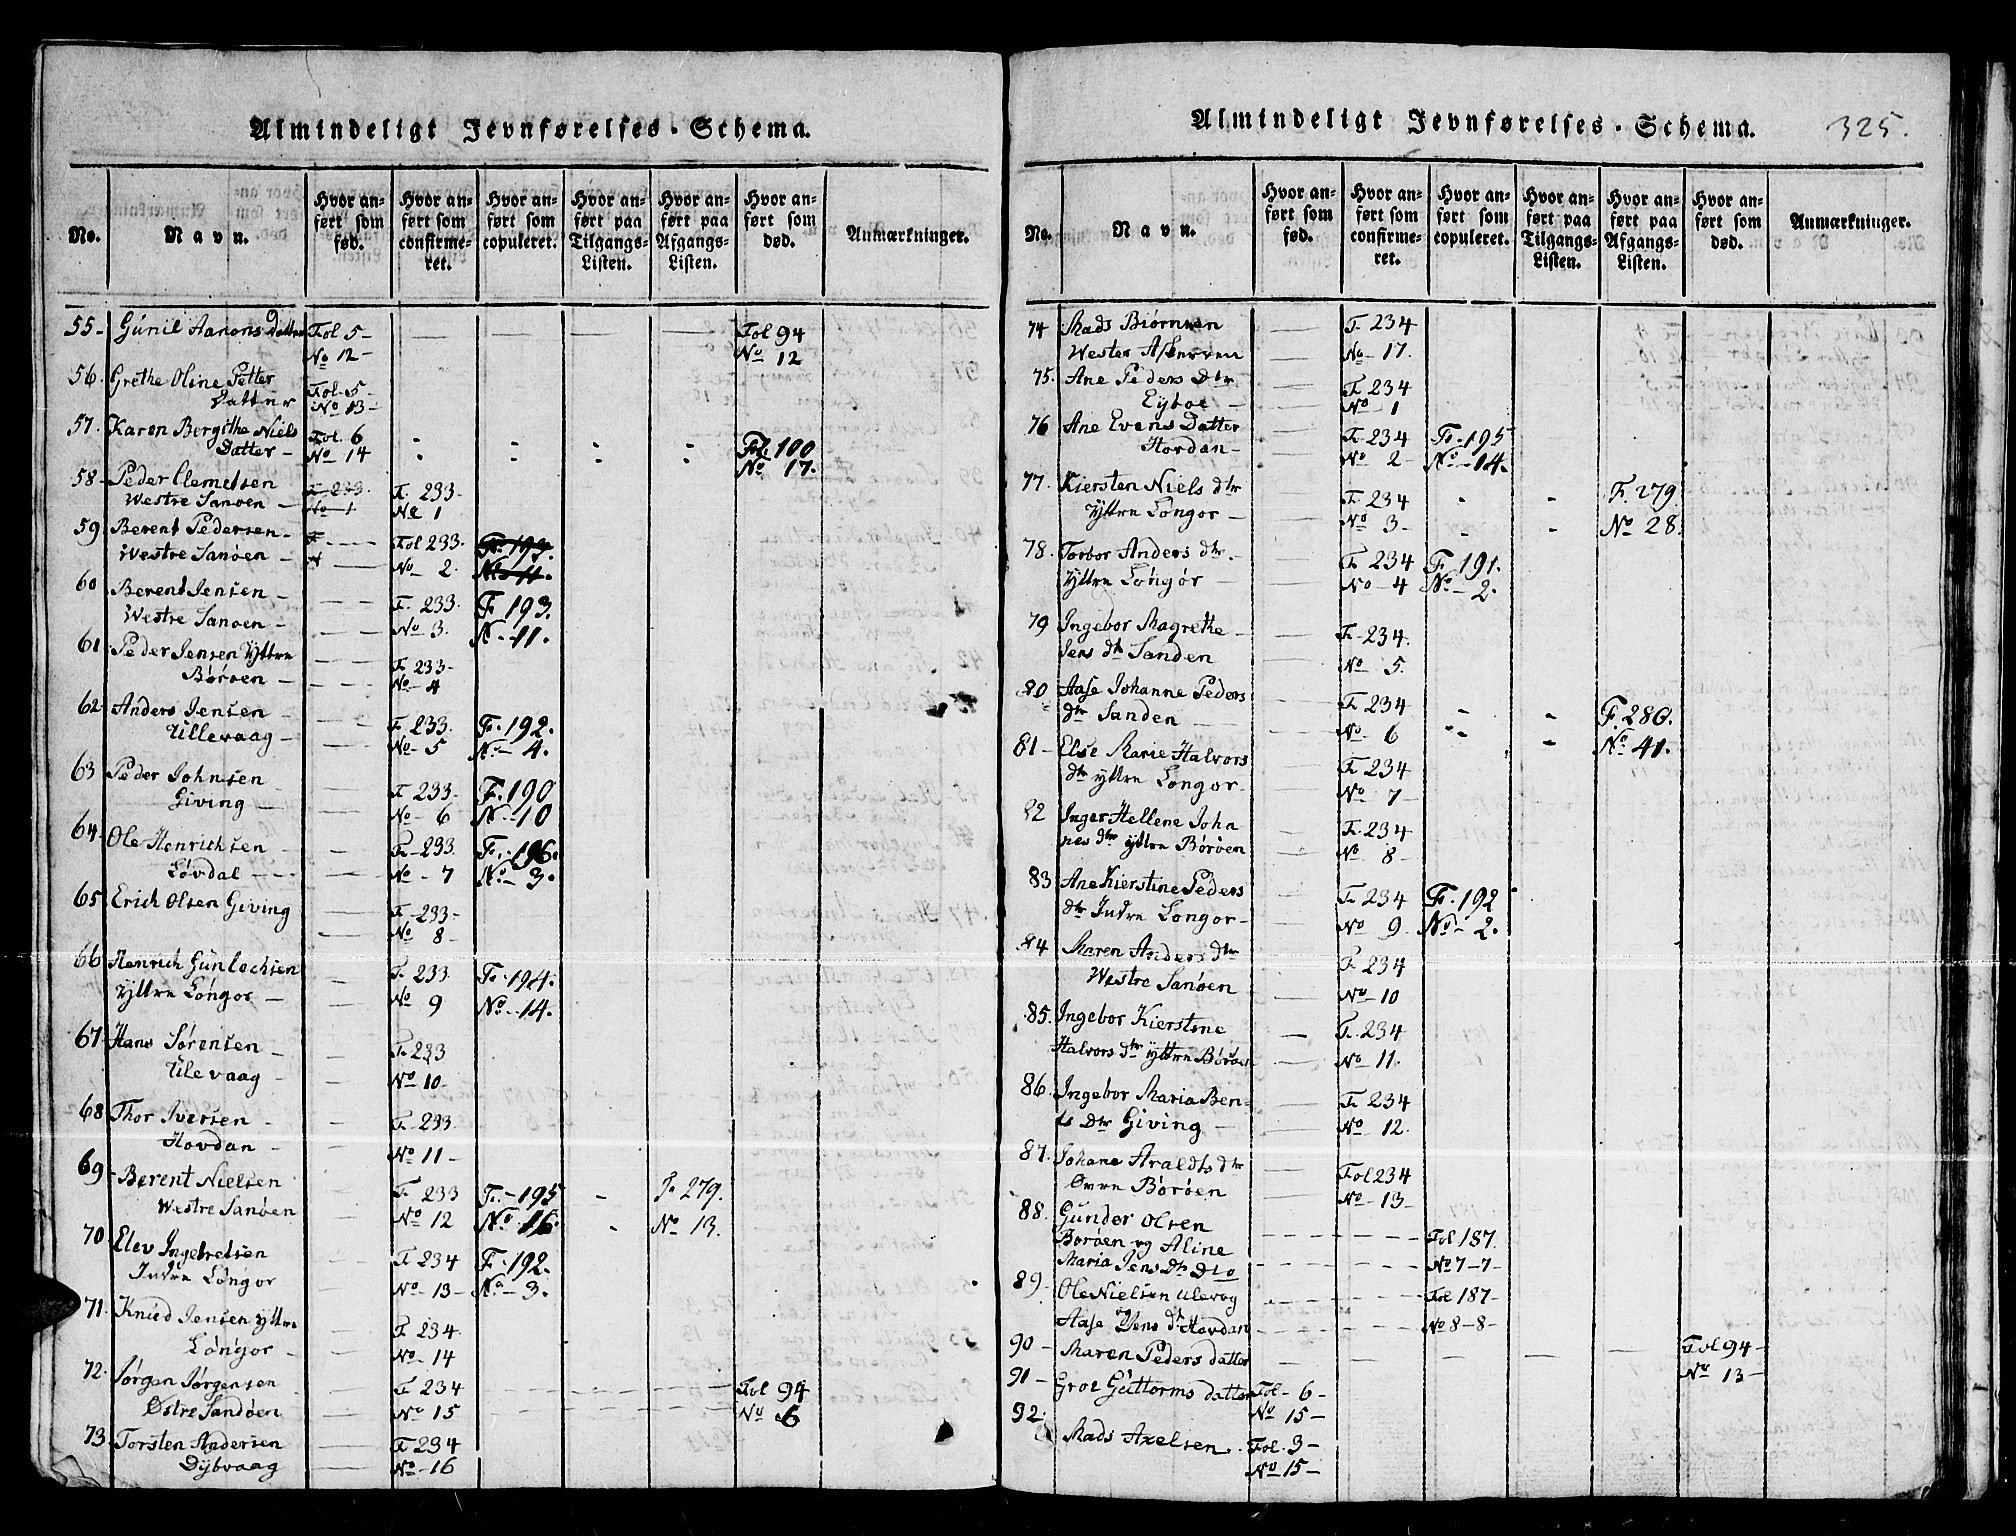 Almindeligt Jevnførelses-Schema.
No.
Navn.
Hvor anført som fød.
Hvor anført som confirmeret.
Hvor anført som copuleret.
Hvor anført paa Tilgangs-Listen.
Hvor anført paa Afgangs-Listen.
Hvor anført som død.
Anmærkninger.
55- Gunil Aanons Datter Fol 5- — — — — Fol 94
No 12- No 12
56. Grethe Oline Petter Fol-5-
Datter No 13-
57. Karen Bergithe Niels Fol. 6 Fol. 100
Datter- No 14 No 17.
58- Peder Clemetsen F 233. F. 233-
Westre Sanøen- No-1 No 1
59 Berent Pedersen- F Fol 233. F. 193.
Westre Sanøen- No- 2. No 11.
60 Berend Jensen- F. 233. F 193.
Westre Sanøen- No 3. N-11.
61 Peder Jensen Yttre F 233-
Børøen- No-4
62 Anders Jensen- F. 233. F. 192.
Ullevaag- No-5 No-4.
63 Peder Johnsen F 233- F. 190
Giving- No-6 No-10
64- Ole Henrichsen F-233. F.-196.
Løvdal--- No-7 No-3.
65 Erich Olsen Giving F-233-
No 8-
66 Henrich Gunlachsen F. 233 F. 194.
Yttre Løngør- No 9 No-14.
67 Hans Sørensen- F. 233
Ulevaag- No 10-
68 Thor Iversen- F. 233
Hovdan- No 11-
69- Berent Nielsen F 233 F.-195 - F. 279.
Westre Sanøen No 12 No. 16. - No 13.
70 Elev Ingebretsen F. 234 F. 192.
Indre Løngør No-13- No-3.
71. Knud Jensen Yttre F 234
Løngør- No-14
72. Jørgen Jørgensen F 234 Fol 94
Østre Sandøen No 15 No 6
73. Torsten Andersen F 234
Dybvaag No-16
Almindeligt Jevnførelses-Schema.
325.
No.
Navn.
Hvor anført som fød.
Hvor anført som confirmeret.
Hvor anført som copuleret.
Hvor anført paa Tilgangs-Listen.
Hvor anført paa Afgangs-Listen.
Hvor anført som død.
Anmærkninger.
74 Mads Biørnsen F. 234
Wester No- 17.
75. Ane Peders dtr F 234
Eyboe- No-1
76 Ane Evens Datter F. 234 F.-195
Hovdan- No 2- No-14.
77. Kiersten Niels dtr F 234 - - F. 279
Yttre Løngør- No 3- - - No 28.
78. Torbor Anders dtr. F. 234 F. 191.
Yttre Løngør- No-4 No-2.
79 Ingebor Magrethe- F-234.
Jens dtr Sanden No 5.
80 Aase Johanne Peders F. 234 - - F. 280.
dtr Sanden- No- 6 - - No 41.
81- Else Marie Halvors F. 234
dtr yttre Løngør- No- 7-
82 Inger Hellene John F. 234
nes dtr yttre Børøen No 8-
83 Ane Kierstine Peders F. 234 F. 192
dtr Indre Løngør- No 9. No-2.
84 Maren Anders dtr F. 234
Westre Sanøen No-10
85. Ingebor Kierstine F. 234
Halvors dtr yttre Børøen No 11.
86. Ingebor Maria Ben- F. 234
ts dtr Giving- No 12.
87. Johane Aralds dtr Fol 234
Øvre Børøen No-13-
88. Gunder Olsen
Børøen og Aline Fol 187.
Maria Jens dtr dto No 7-7-
89- Ole Nielsen Ulevog Fol 187-
og Aase Jens dtr Hovdan No 8-8-
90- Maren Peders datter Fol 94-
No 13-
91- Groe Guttorms datter Fol-6-
No 15-
92. Mads Axelsen. Fol. 3-
No 15-